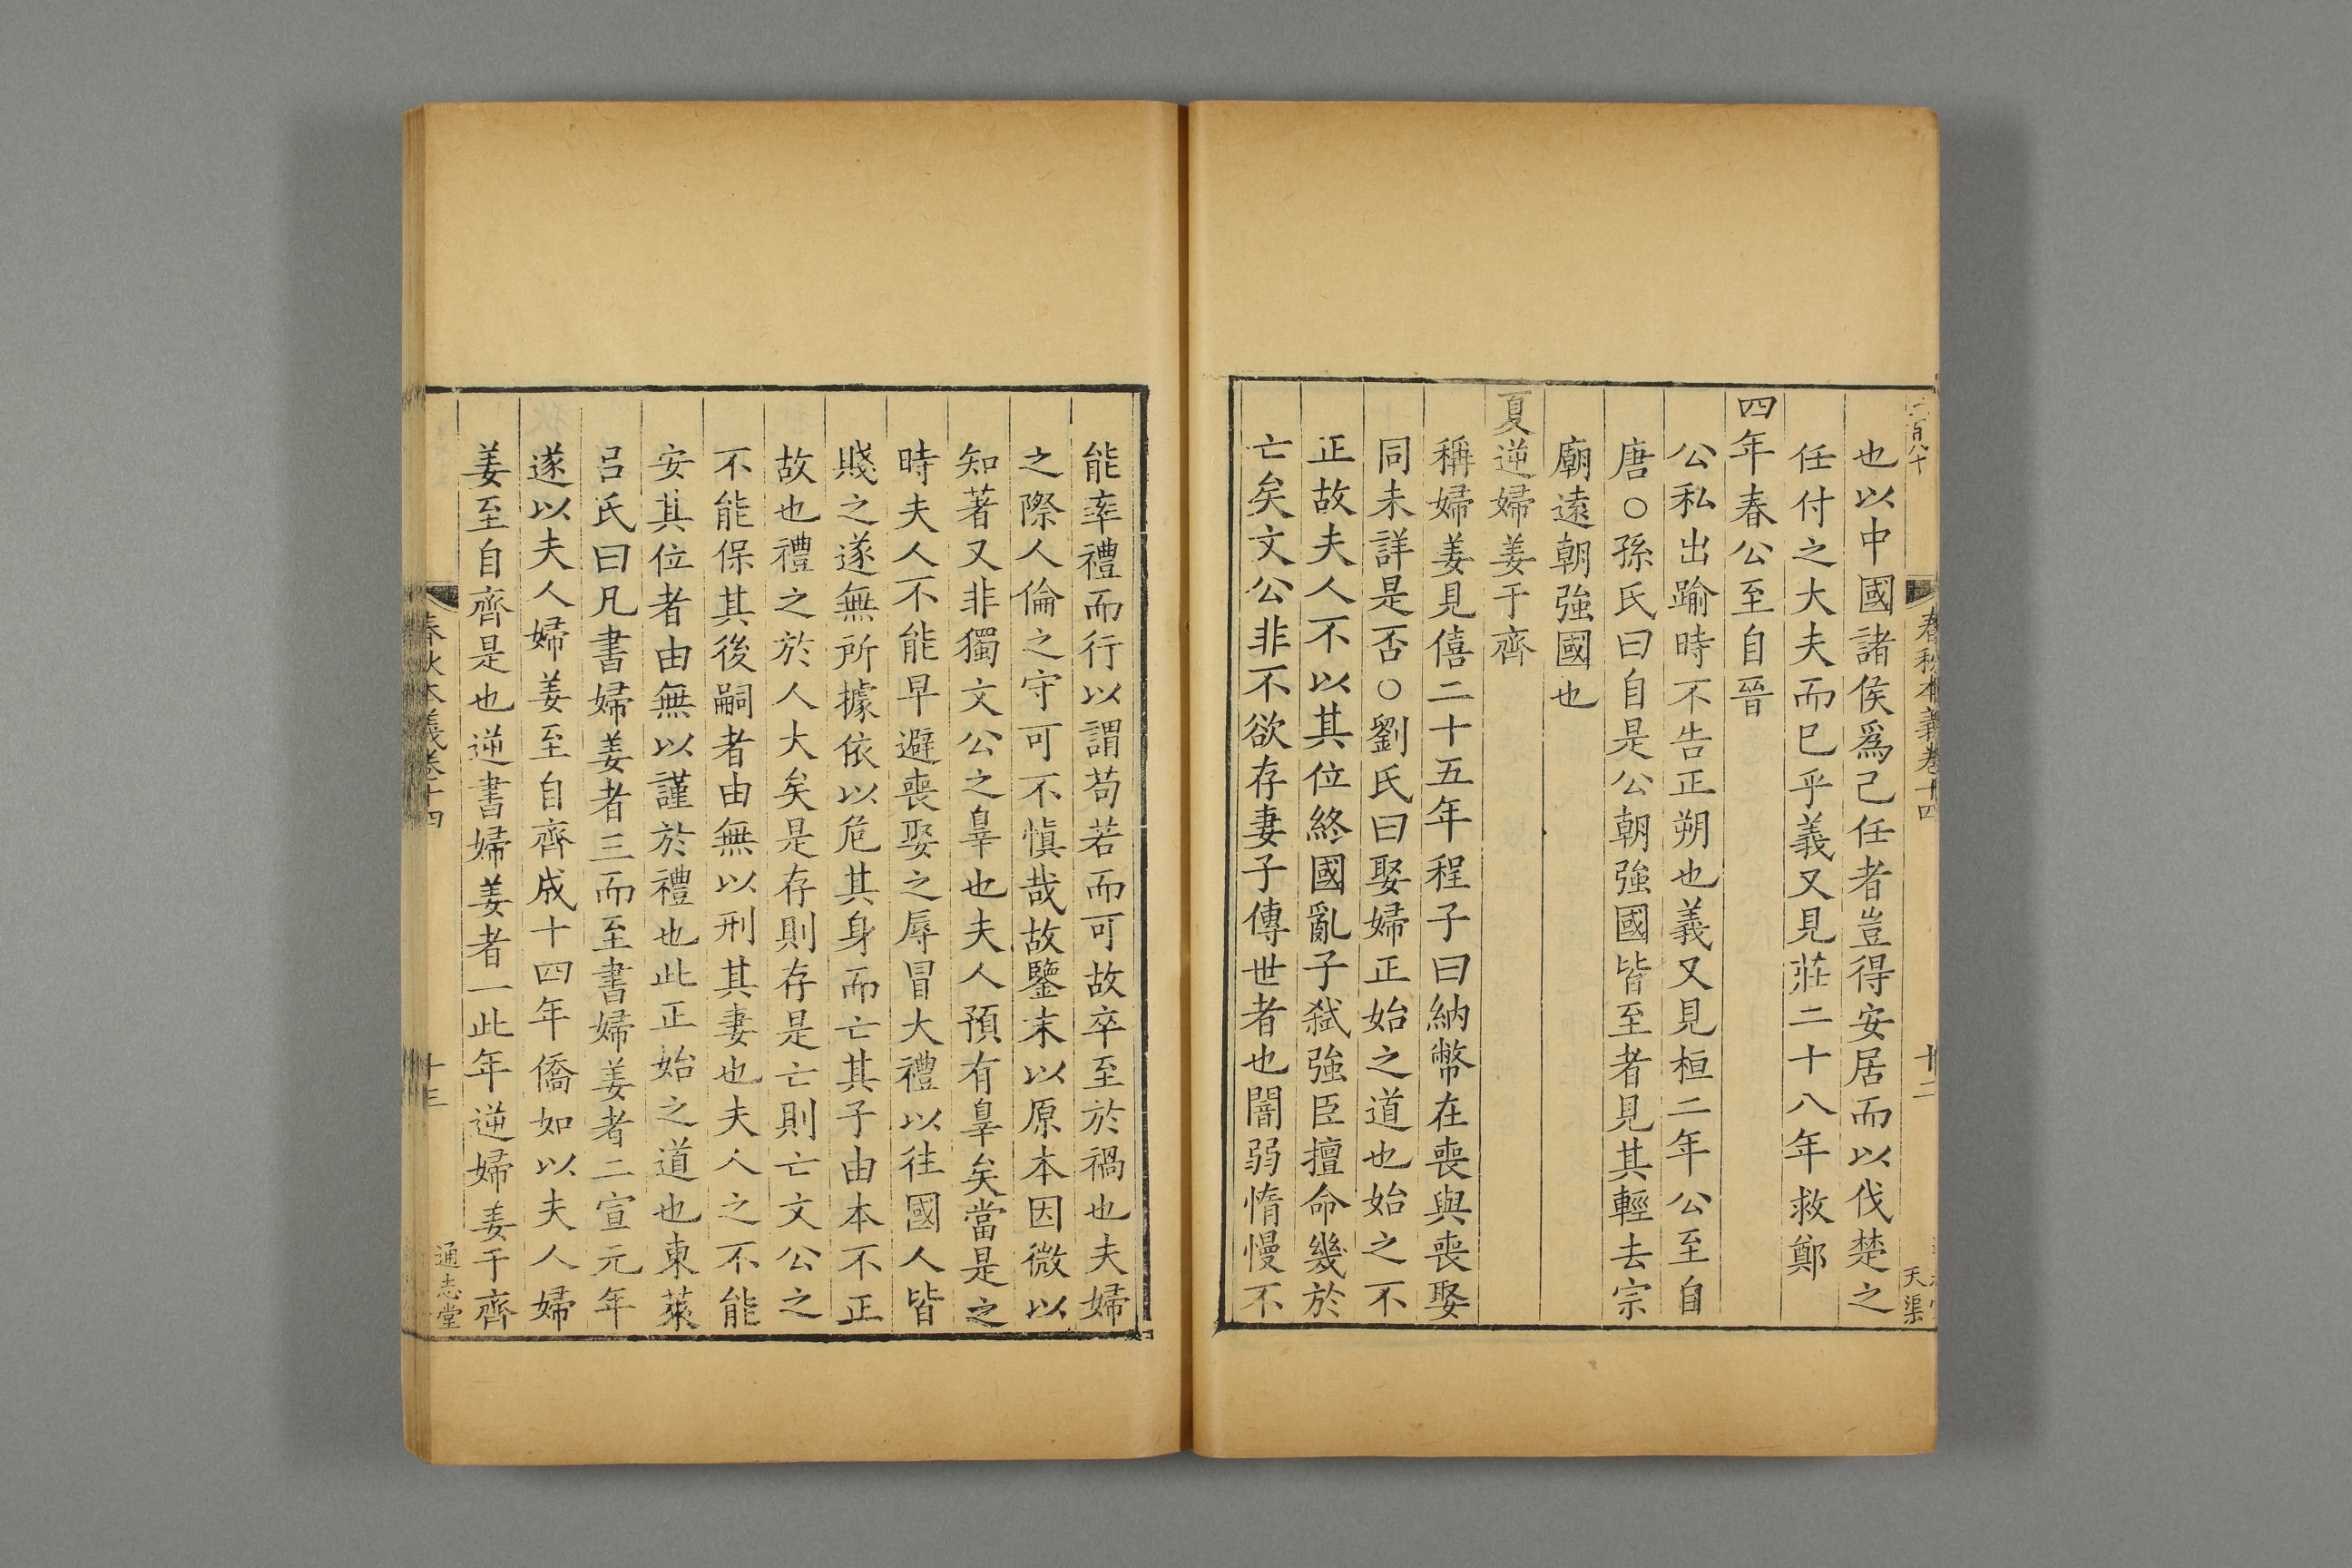 春秋本義卷十四
十二
天渠
也以中國諸侯爲己任者豈得安居而以伐楚之
任付之大夫而巳乎義又見莊二十八年救鄭
四年春公至自晉
公私出踰時不告正朔也義又見桓二年公至自
唐○孫氏曰自是公朝強國皆至者見其輕去宗
廟遠朝強國也
夏逆婦姜于齊
稱婦姜見僖二十五年程子曰納幣在喪與喪娶
同未詳是否○劉氏曰娶婦正始之道也始之不
正故夫人不以其位終國亂子弑強臣擅命幾於
亡矣文公非不欲存妻子傳世者也闇弱惰慢不
能率禮而行以謂苟若而可故卒至於禍也夫婦
之際人倫之守可不慎哉故鑒末以原本因微以
知著又非獨文公之辠也夫人預有辠矣當是之
時夫人不能早避喪娶之辱冒大禮以往國人皆
賤之遂無所據依以危其身而亡其子由本不正
故也禮之於人大矣是存則存是亡則亡文公之
不能保其後嗣者由無以刑其妻也夫人之不能
安其位者由無以謹於禮也此正始之道也東萊
呂氏曰凡書婦姜者三而至書婦姜者二宣元年
遂以夫人婦姜至自齊成十四年僑如以夫人婦
姜至自齊是也逆書婦姜者一此年逆婦姜于齊
春秋本義卷十四
十三
通志堂